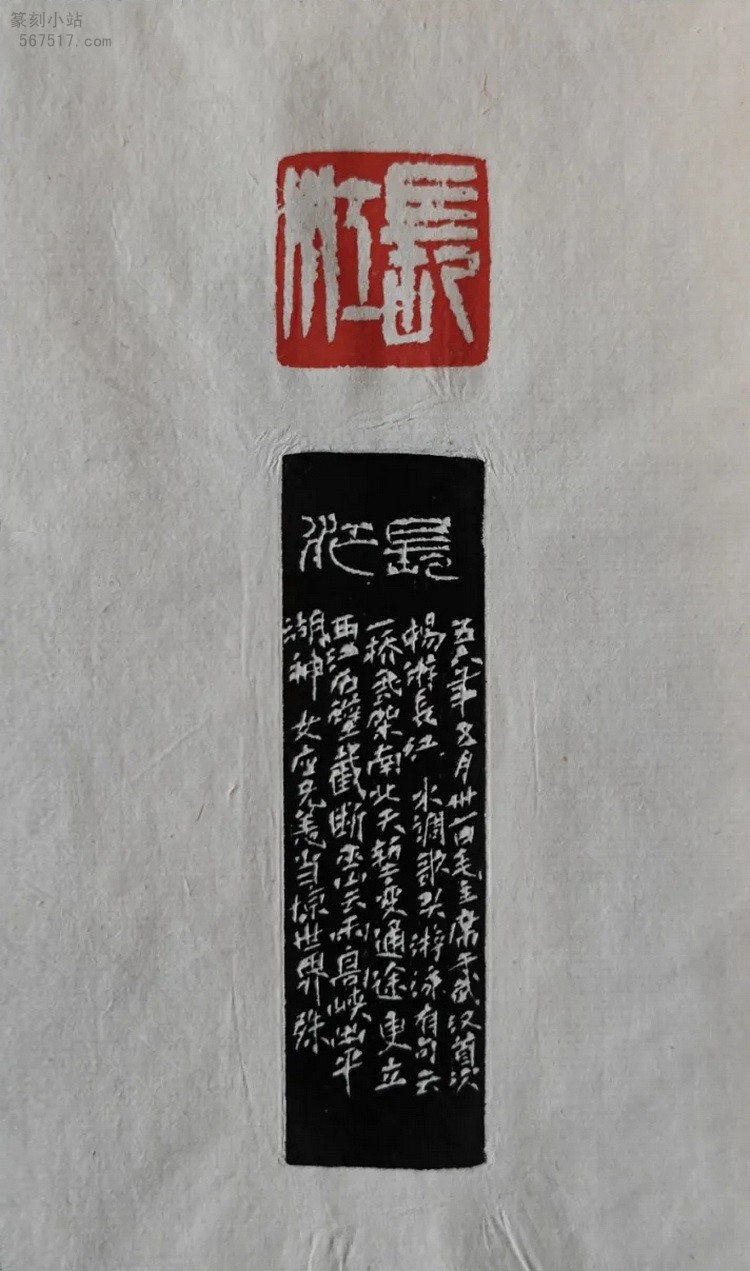 篆刻小站
567517.com
長江
長江
五六年五月卅一日毛主席于武汉首次
暢游長江 水調歌头游泳有句云
一桥飛架南北天堑变通途更立
西江石壁截断巫山云雨高峡出平
湖神女应无恙当惊世界殊